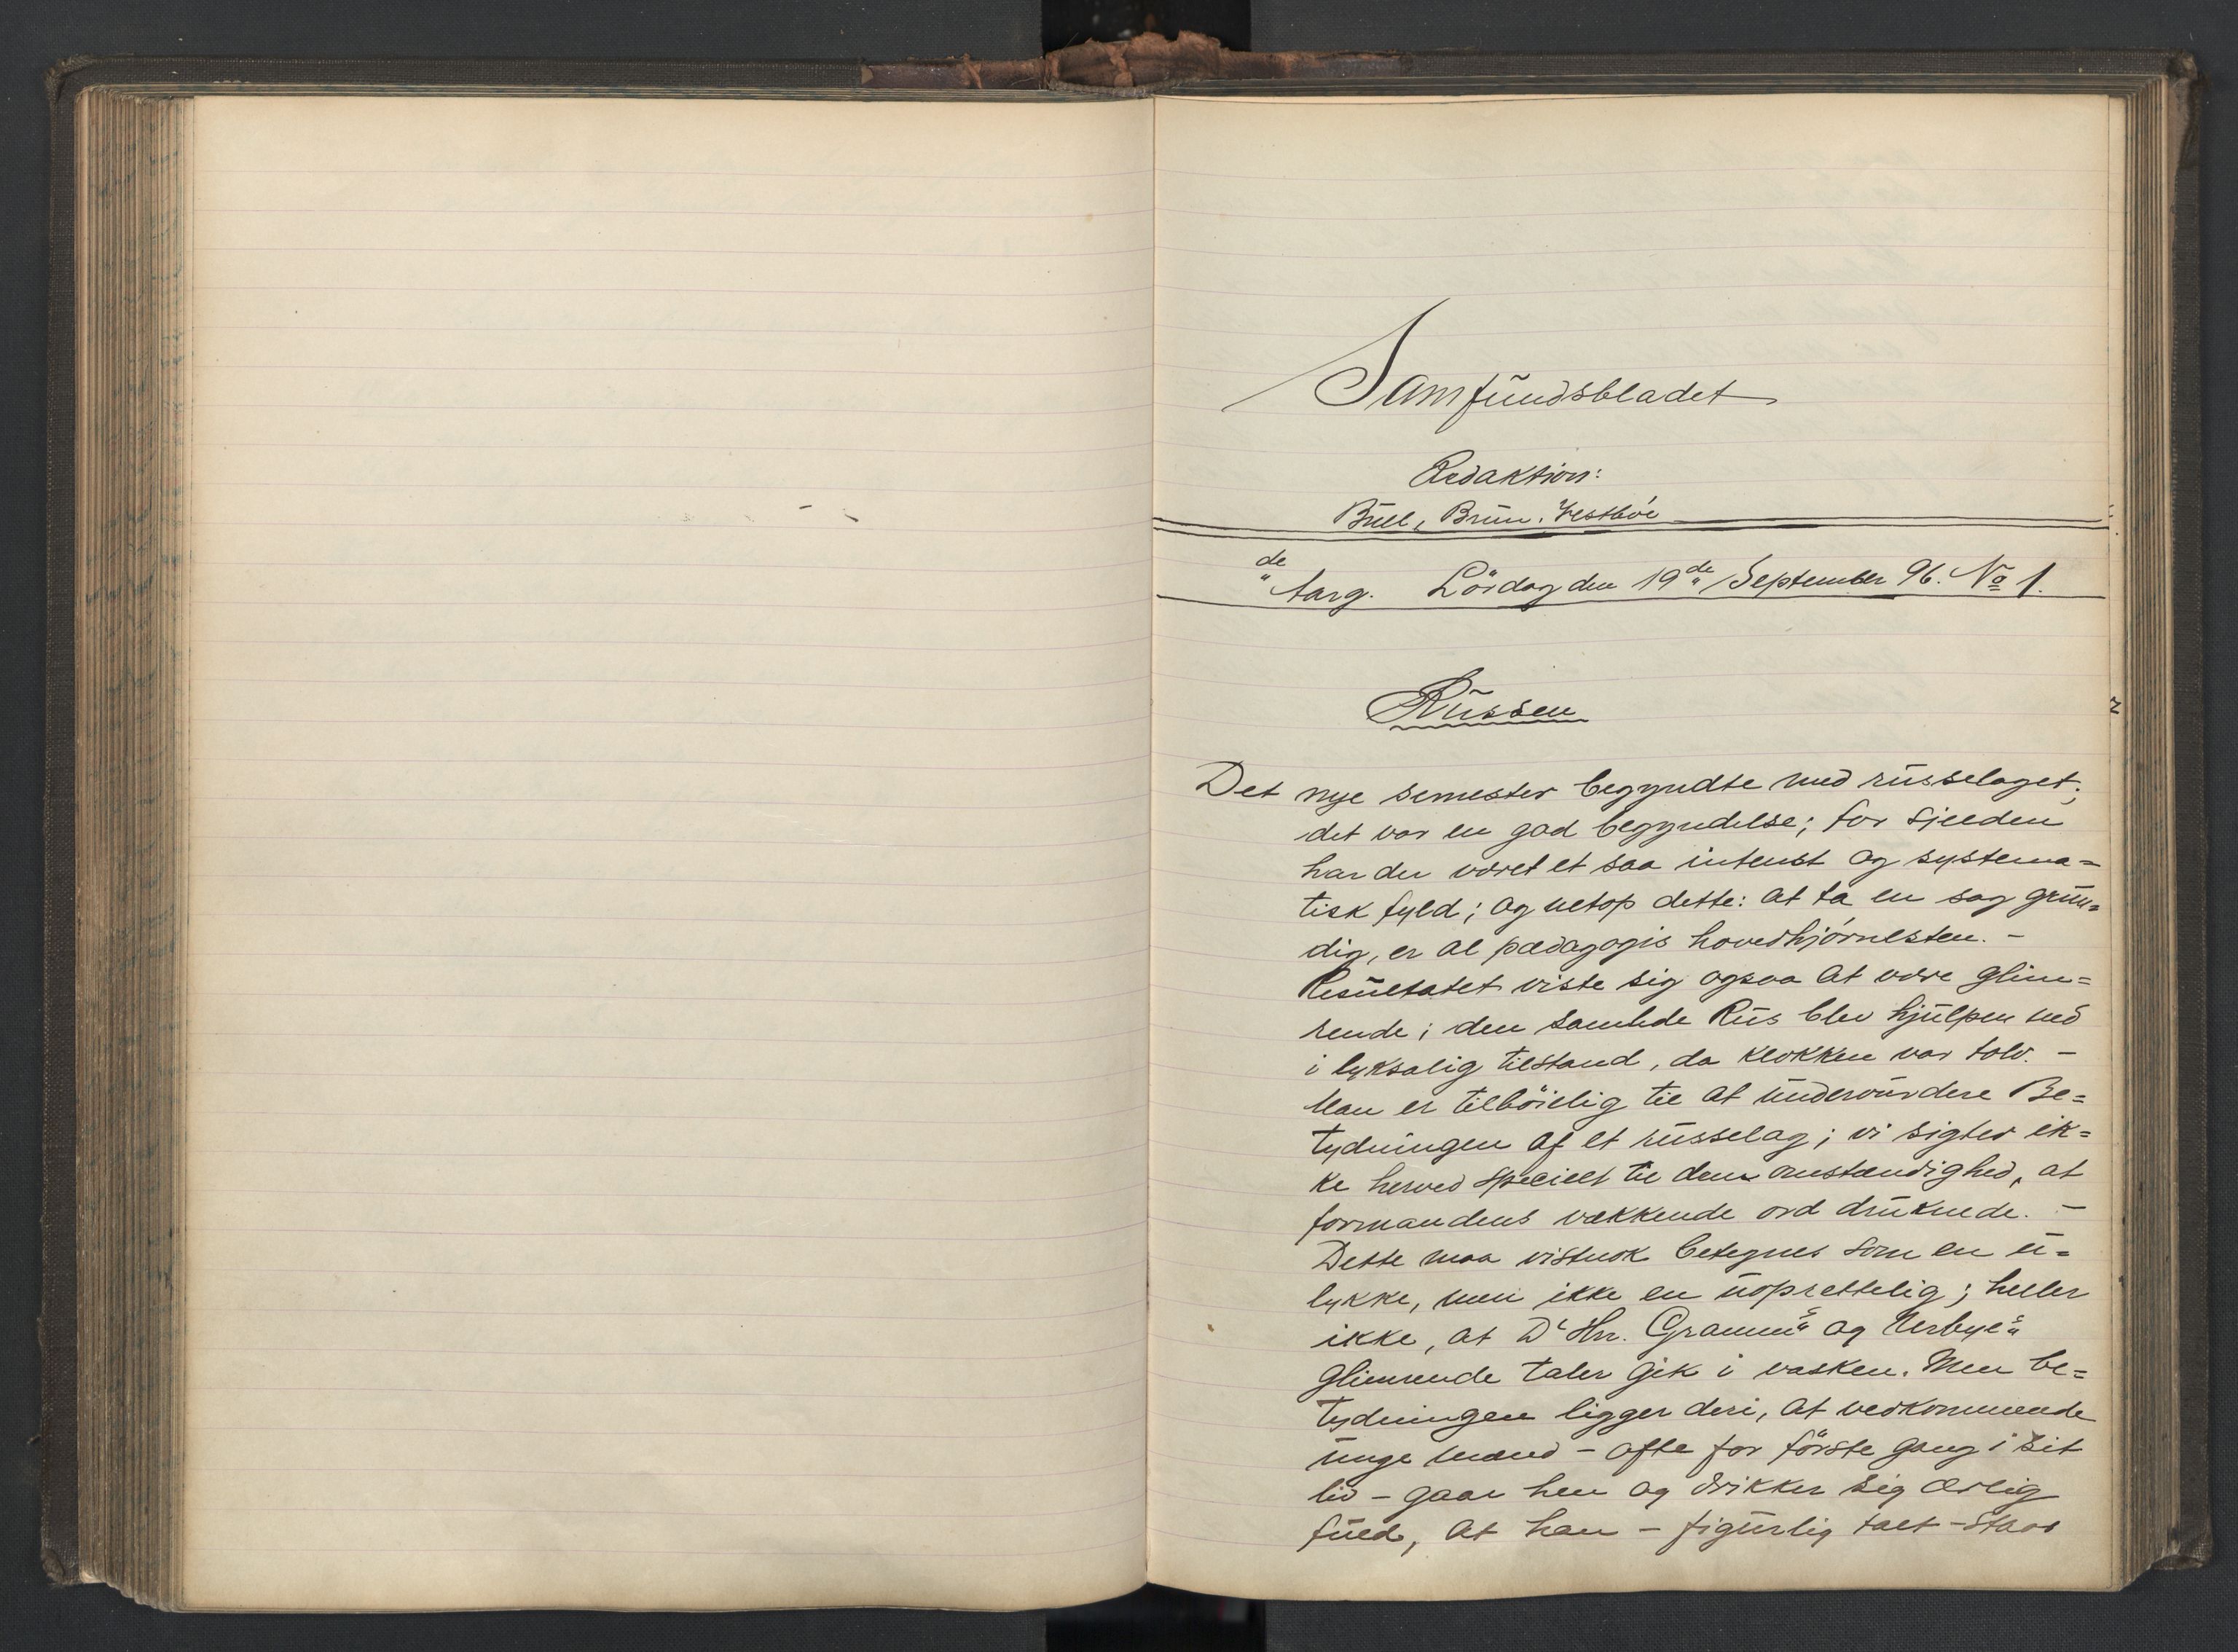 Samfundsbladet
Redaktion:
Bull, Bruun. Vestbøe
de
" Aarg. Lördag den 19de September 96. No 1.
Russen
Det nye semester begyndte med russelaget;
det var en god begyndelse; for sjelden
har der været et saa intenst og systema=
tisk fyld; og netop dette: at ta en sag grun=
dig, er al pædagogis hovedhjörnesten. –
Resultatet viste sig ogsaa at være glim=
rende; den samlede Rus blev hjulpen ned
i lyksalig tilstand, da klokken var tolv. –
Man er tilböielig til at undervurdere Be=
tydningen af et russelag; vi sigter ik=
ke herved specielt til den omstændighed, at
formandens vækkende ord druknede. –
Dette maa vistnok betegnes som en u=
lykke, men ikke en uoprettelig; heller
ikke, at Dr Hrr. og
glimrende taler gik i vasken. Men be=
tydningen ligger deri, at vedkommende
unge mand – ofte for förste gang i sit
liv – gaar hen og drikker sig ærlig
fuld, at han – figurlig talt – staar